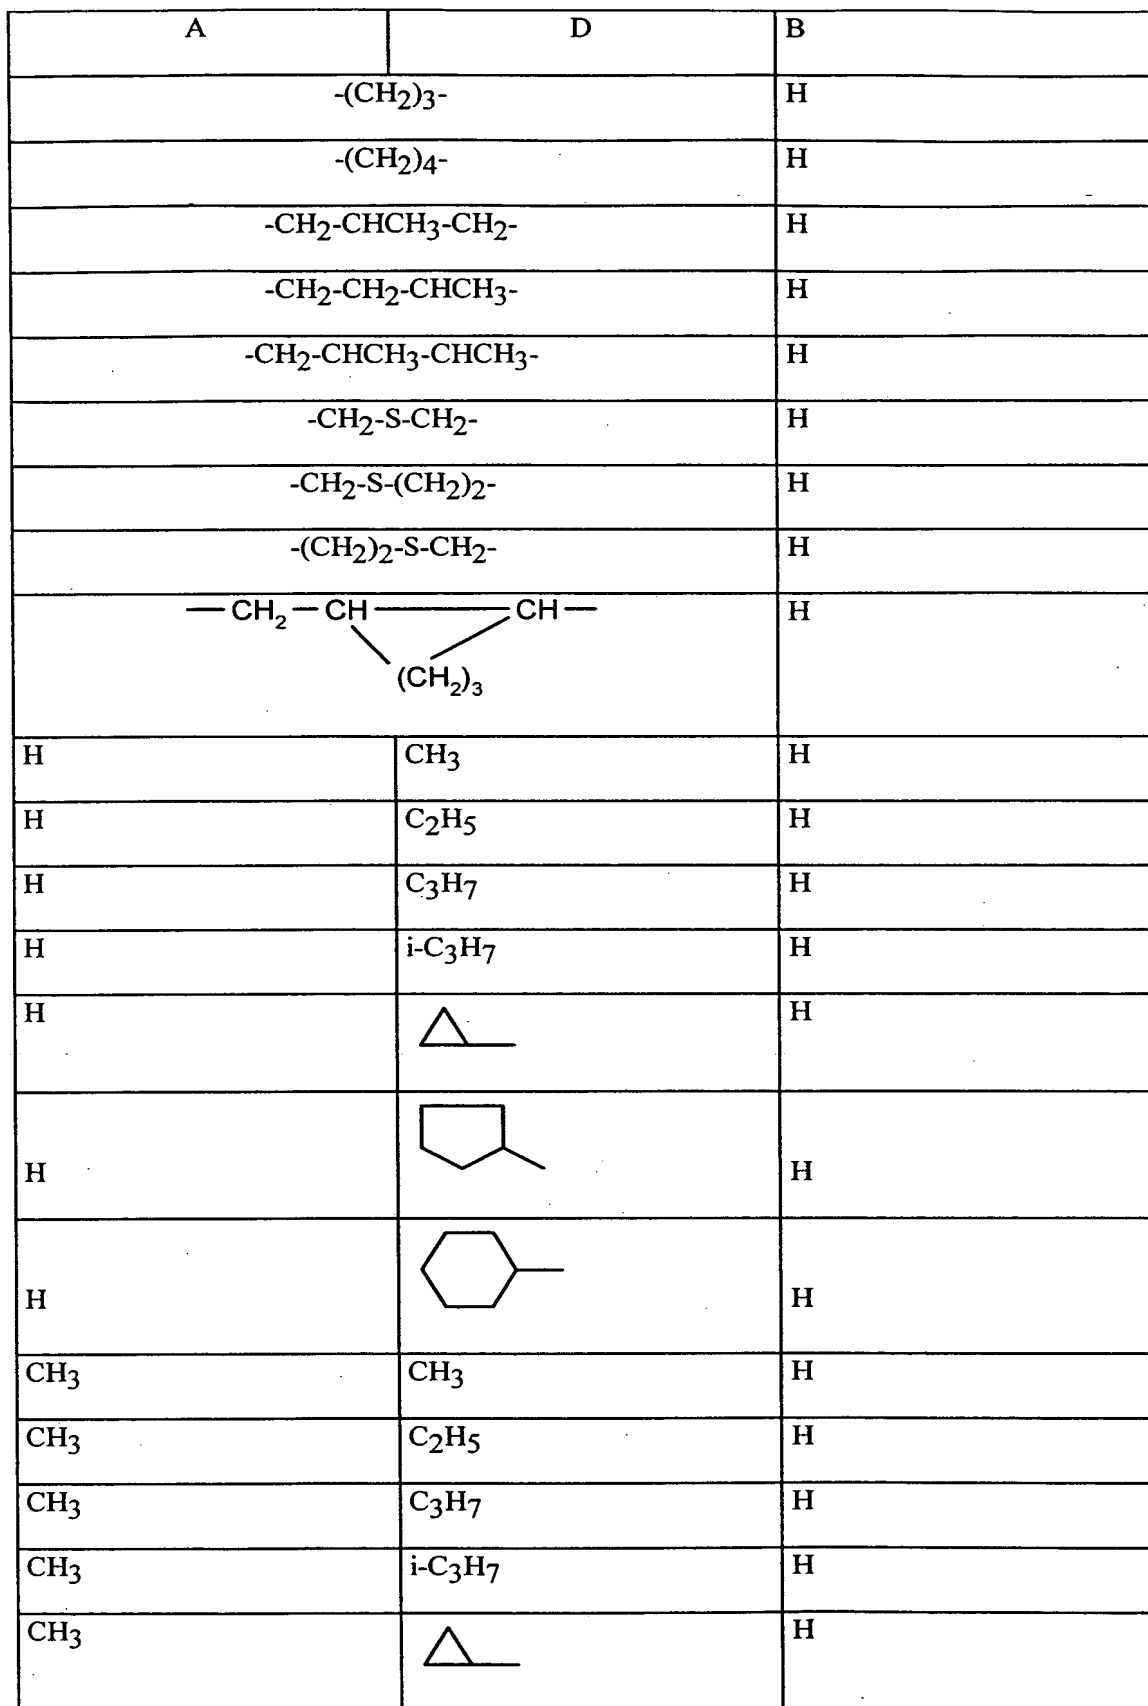 A D B
-(CH2)3- H
-(CH2)4- H
-CH2-CHCH3-CH2- H
-CH2-CH2-CHCH3- H
-CH2-CHCH3-CHCH3- H
-CH2-S-CH2- H
-CH2-S-(CH2)2- H
-(CH2)2-S-CH2- H
CH2 CH CH H
(CH2)3
H CH3 H
H C2H5 H
H C3H7 H
H i-C3H7 H
H H
H H
H H
CH3 CH3 H
CH3 C2H5 H
CH3 C3H7 H
CH3 i-C3H7 H
CH3 H